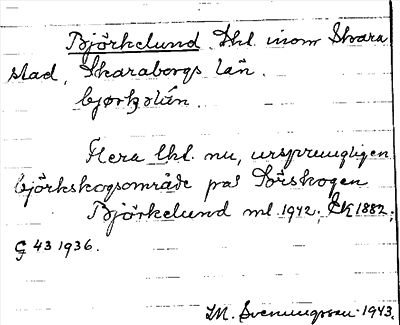 Björkelund. Lkl. inom Skara
stad, Skaraborgs län.
Flera lkl. nu, ursprungligen
björkskogsområde på Dörskogen
Björkelund ml 1942; EK 1882;
G 43 1936.
M. Svenungsson 1943.